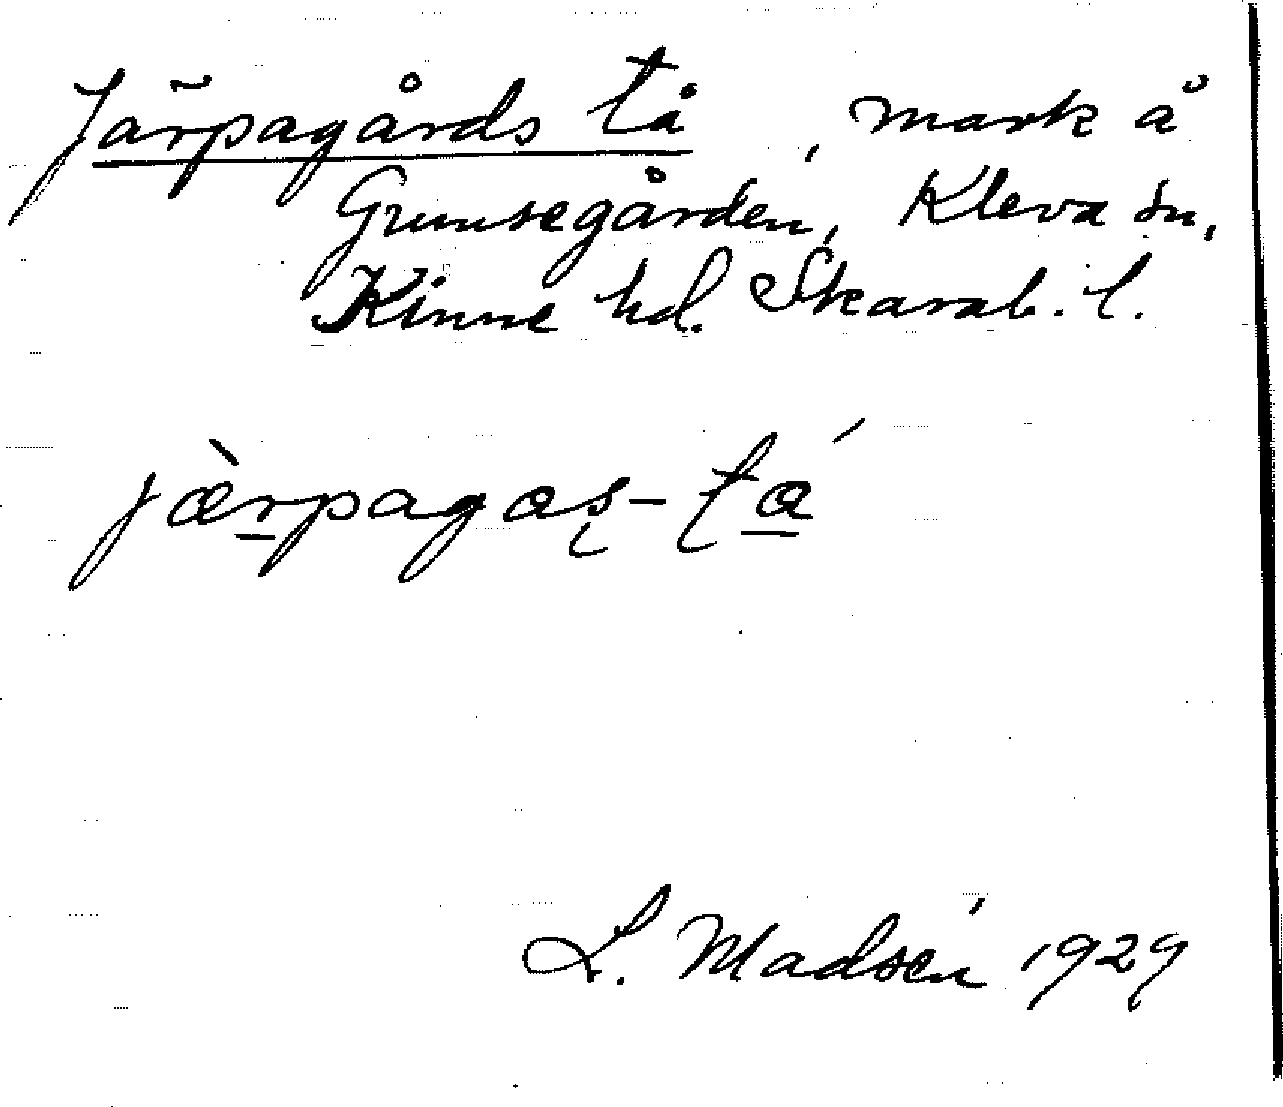 Järpagårds tå, mark å
Grumsegården, Kleva sn,
Kinne hd. Skarab. l.
jæ̀r̲pagas̨-ţa̲´
L. Madsén 1929